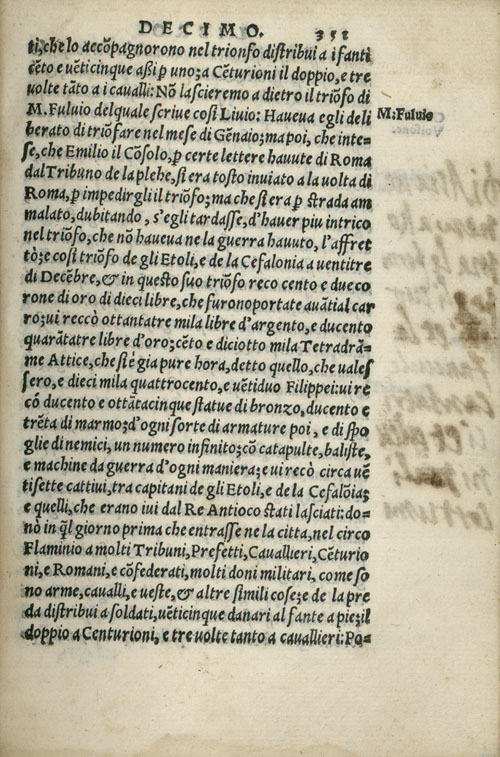 DECIMO. 352
ti, che lo accõpagnorono nel trionfo distribui a i fanti
cẽto e uẽticinque aßi ꝑ uno; a Cẽturioni il doppio, e tre
uolte tãto a i caualli: Nõ lascieremo a dietro il triõfo di
M. Fuluio del quale scriue cosi Liuio: Haueua egli deli
berato di triõfare nel mese di Gẽnaio; ma poi, che inte-
se, che Emilio il Cõsolo, ꝑ certe lettere hauute di Roma
dal Tribuno de la plehe, si era tosto inuiato a la uolta di
Roma, ꝑ impedirgli il triõfo; ma che si era ꝑ strada am
malato, dubitando, s'egli tardasse, d'hauer piu intrico
nel triõfo, che nõ haueua ne la guerra hauuto, l'affret
tò; e cosi triõfò de gli Etoli, e de la Cefalonia a uentitre
di Decẽbre, & in questo suo triõfo reco cento e due co
rone di oro di dieci libre, che furono portate auãti al car
ro; ui reccò ottantatre mila libre d'argento, e ducento
quarãtatre libre d'oro; cẽto e diciotto mila Tetradrã-
me Attice, che si è gia pure hora, detto quello, che uales
sero, e dieci mila quattrocento, e uẽtiduo Filippei: ui re
cò ducento e ottãtacinque statue di bronzo, ducento e
trẽta di marmo; d'ogni sorte di armature poi, e di spo
glie di nemici, un numero infinito; cõ catapulte, baliste,
e machine da guerra d'ogni maniera; e ui recò circa uẽ
tisette cattiui, tra capitani de gli Etoli, e de la Cefalõia;
e quelli, che erano iui dal Re Antioco stati lasciati: do-
nò in q̃l giorno prima che entrasse ne la citta, nel circo
Flaminio a molti Tribuni, Prefetti, Cauallieri, Cẽturio
ni, e Romani, e cõfederati, molti doni militari, come so
no arme, caualli, e ueste, & altre simili cose; e de la pre
da distribui a soldati, uẽticinque danari al fante a pie; il
doppio a Centurioni, e tre uolte tanto a cauallieri: Po-
M: Fuluio